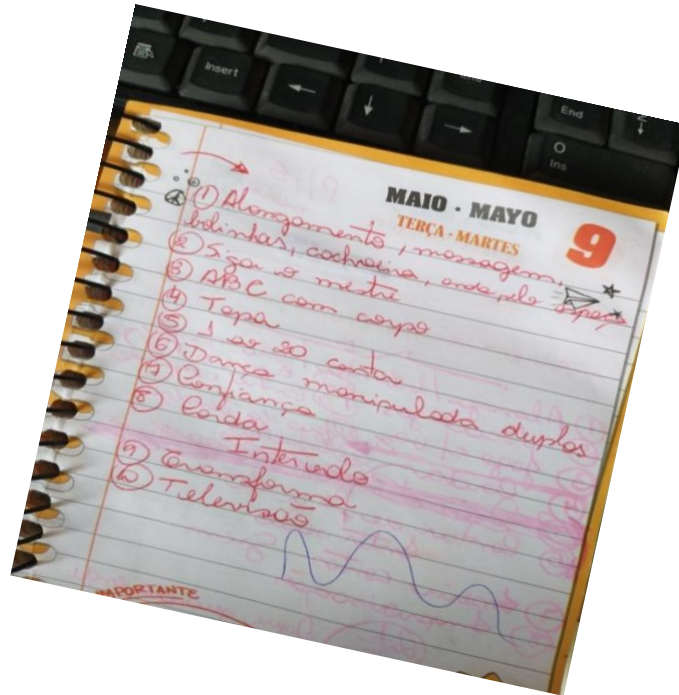 Insert
End
O
Ins
MAIO · MAYO
TERÇA · MARTES
9
① Alongamento, massagem,
bolinhas, cachoeira, anda pelo espaço
② Siga o mestre
③ ABC com corpo
④ Tapa
⑤ 1 ao 20 conta
⑥ Dança manipulada duplas
⑦ Confiança
⑧ Corda
Intervalo
⑨ Transforma
⑩ Televisão
IMPORTANTE